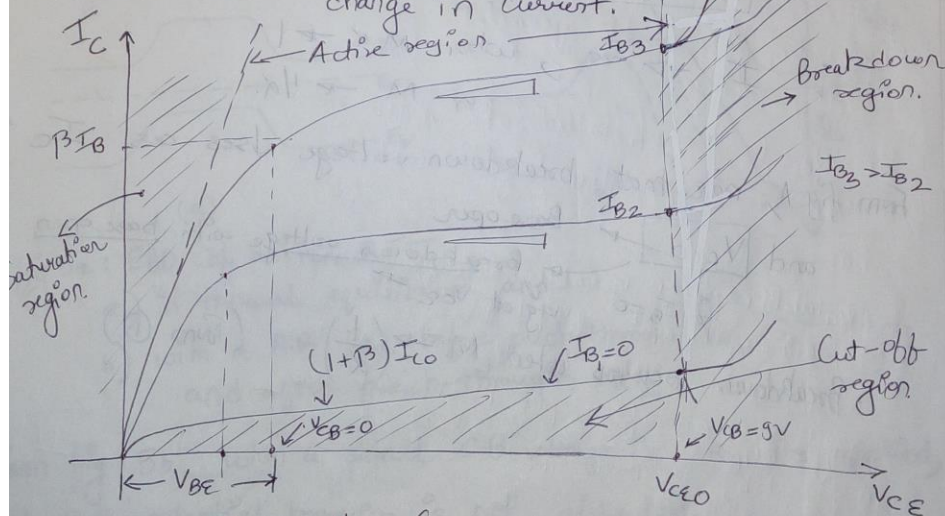 change in current.
I_C
Active region
I_B3
Breakdown
region.
βI_B
I_B3 > I_B2
I_B2
Saturation
region.
(1+β) I_CO
I_B=0
Cut-off
region
V_CB=0
V_CB=9V
V_BE
V_CEO
V_CE